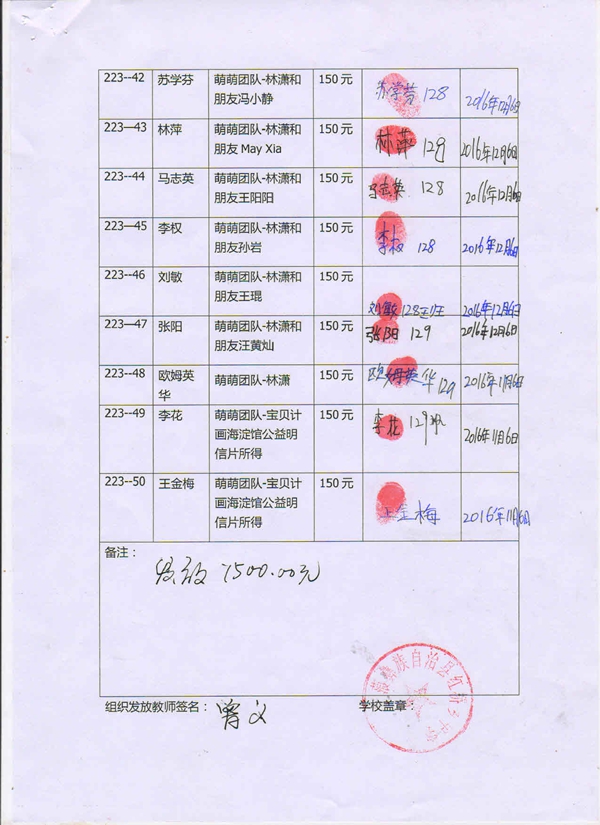 223--42 苏学芬 萌萌团队-林潇和 150元 苏学芬 128 2016年12月6日
朋友冯小静
223—43 林萍 萌萌团队-林潇和 150元 林萍 129 2016年12月6日
朋友May Xia
223--44 马志英 萌萌团队-林潇和 150元 马志英 128 2016年12月6日
朋友王阳阳
223—45 李权 萌萌团队-林潇和 150元 李权 128 2016年12月6日
朋友孙岩
223--46 刘敏 萌萌团队-林潇和 150元
朋友王琨 刘敏 128 2016年12月6日
223—47 张阳 萌萌团队-林潇和 150元 张阳 129 2016年12月6日
朋友汪黄灿
223--48 欧姆英 萌萌团队-林潇 150元 欧姆英华 129 2016年11月6日
华
223--49 李花 萌萌团队-宝贝计 150元 李花 129 2016年11月6日
画海淀馆公益明
信片所得
223--50 王金梅 萌萌团队-宝贝计 150元 王金梅 2016年11月6日
画海淀馆公益明
信片所得
备注：
发放 7500.00元
族自治县红
组织发放教师签名： 曾义 学校盖章：